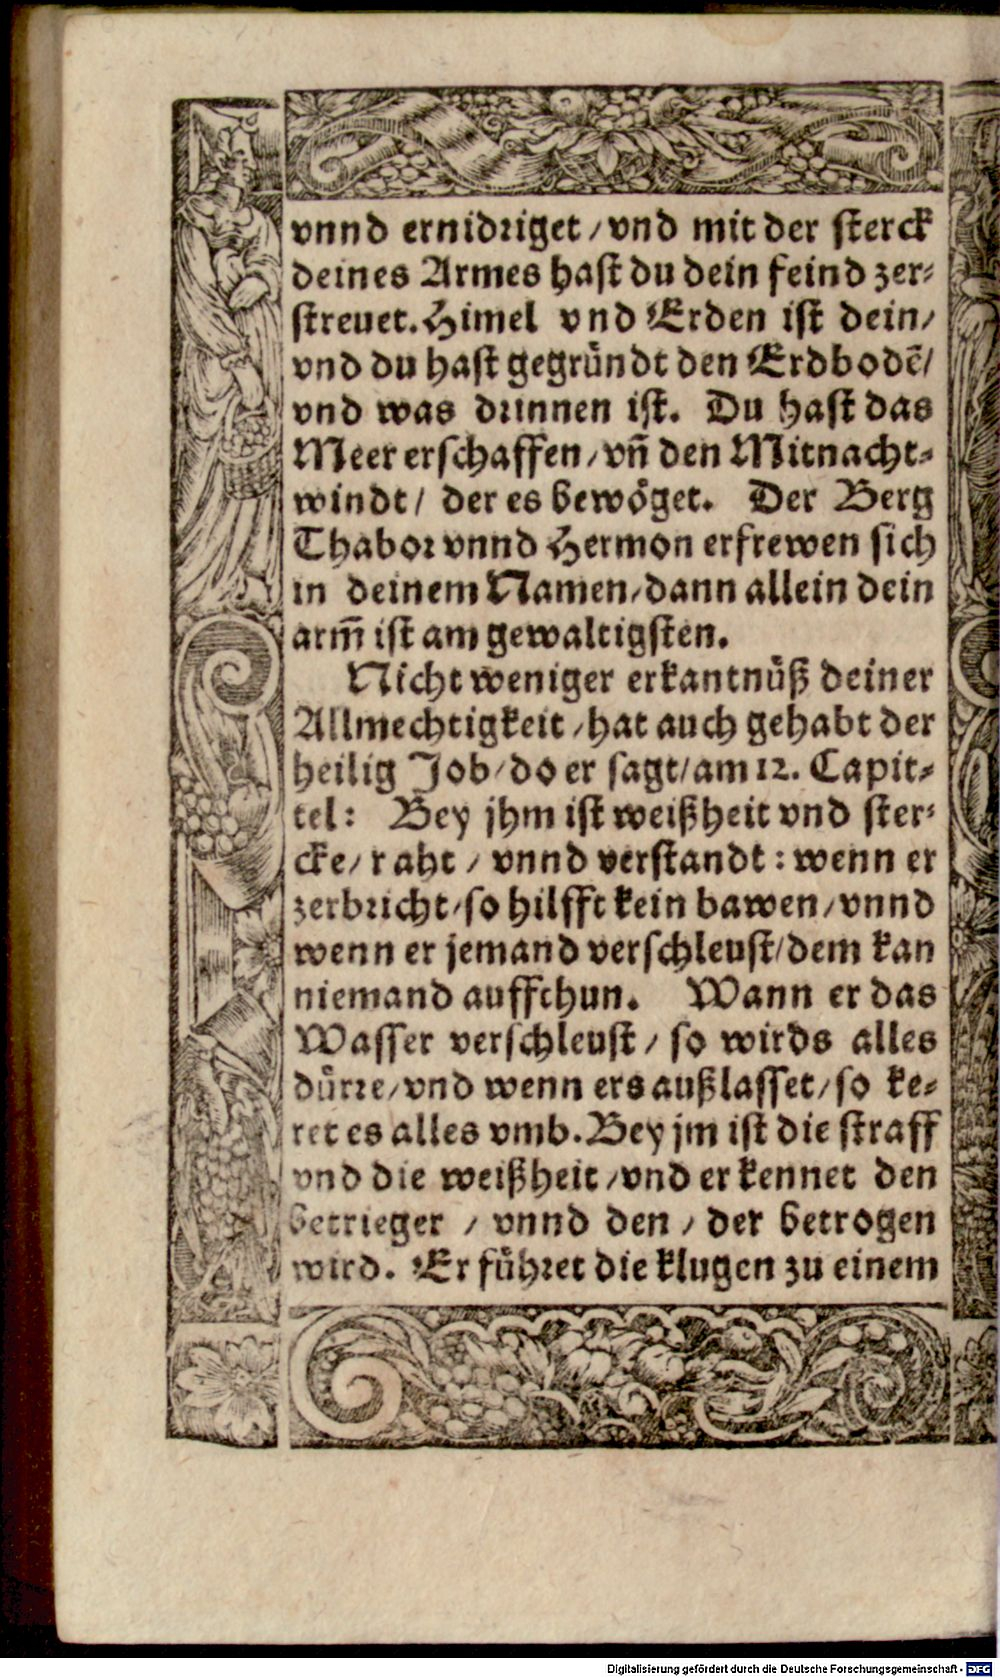 vnnd ernidriget / vnd mit der sterck
deines Armes hast du dein feind zer⸗
streuet. Himel vnd Erden ist dein /
vnd du hast gegründt den Erdbodē /
vnd was drinnen ist. Du hast das
Meer erschaffen / vñ den Mitnacht⸗
windt / der es bewöget. Der Berg
Thabor vnnd Hermon erfrewen sich
in deinem Namen / dann allein dein
arm̄ ist am gewaltigsten.
Nicht weniger erkantnüß deiner
Allmechtigkeit / hat auch gehabt der
heilig Job / do er sagt / am 12. Capit⸗
tel: Bey jhm ist weißheit vnd ster⸗
cke / raht / vnnd verstandt: wenn er
zerbricht / so hilfft kein bawen / vnnd
wenn er jemand verschleust / dem kan
niemand auffthun. Wann er das
Wasser verschleust / so wirds alles
dürre / vnd wenn ers außlasset / so ke⸗
ret es alles vmb. Bey jm ist die straff
vnd die weißheit / vnd er kennet den
betrieger / vnnd den / der betrogen
wird. Er führet die klugen zu einem
Digitalisierung gefördert durch die Deutsche Forschungsgemeinschaft - DFG